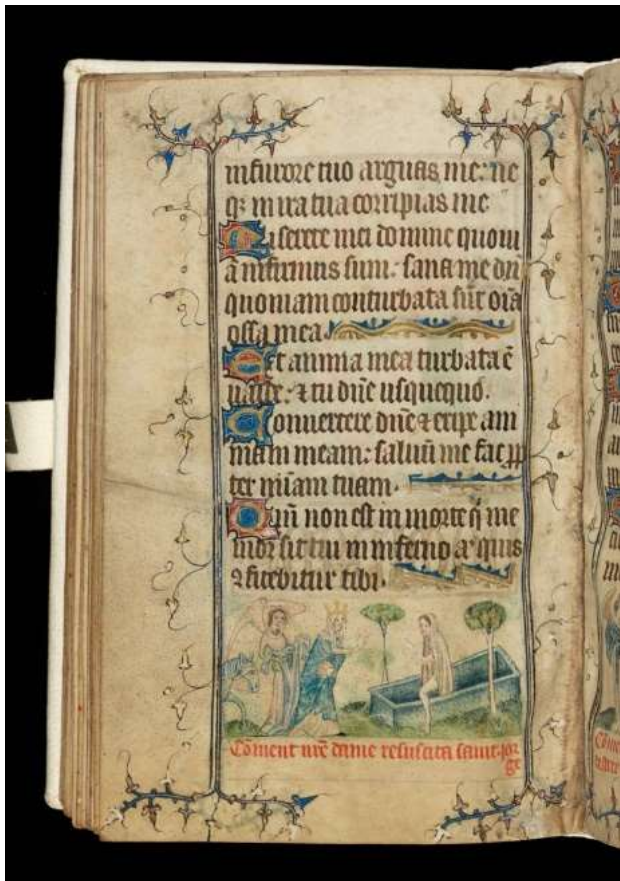 in furore tuo arguas me: ne
q: in ira tua corripias me
Miserere mei domine quoni
ā infirmus sum: sana me dn̄
quoniam conturbata sūt oīa
ossa mea.
Et anima mea turbata ē
valde: ⁊ tu dn̄e usquequo.
Convertere dn̄e ⁊ eripe am
mam meam: salvū me fac ꝓp
ter mīam tuam.
Qm̄ non est in morte q̄ me
mor sit tui in inferno aū quis
ꝯfitebitur tibi.
Cōment nr̄e dame resuscita saint jor
ge